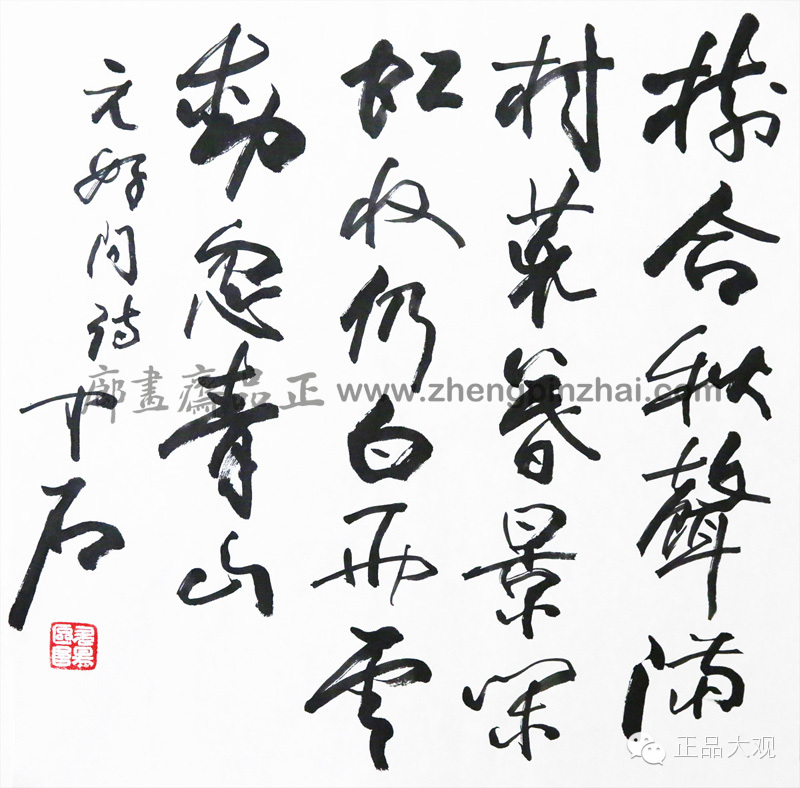 樹合秋聲滿
村荒暮景閑
虹收仍白雨雲
動忽青山
元好问诗
中石
正品齋畫廊 www.zhengpinzhai.com
正品大观